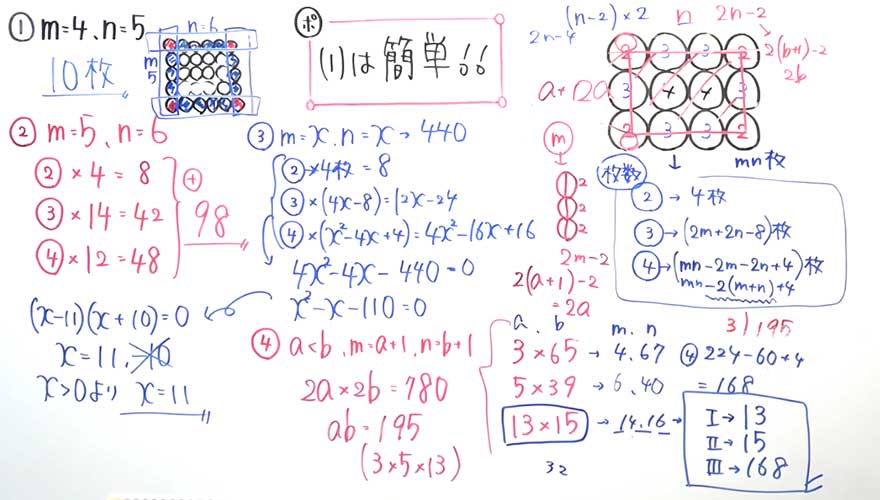 ① m=4、n=5
10枚
n=6
m
5
ポ
(1)は 簡単!!
(n-2)×2
2n-4
n
2n-2
2 3 3 2
3 4 4 3
2 3 3 2
2(b+1)-2
2b
mn枚
m
2
2
2
2m-2
2(a+1)-2
=2a
② m=5、n=6
②×4=8
③×14=42
④×12=48
⊕
98
③ m=x、n=x→440
②→×4枚=8
③×(4x-8)=12x-24
④×(x²-4x+4)=4x²-16x+16
4x²-4x-440=0
x²-x-110=0
(x-11)(x+10)=0
x=11、-10
x>0より x=11
枚数
②→4枚
③→(2m+2n-8)枚
④→(mn-2m-2n+4)枚
mn-2(m+n)+4
④ a<b、m=a+1、n=b+1
2a×2b=780
ab=195
(3×5×13)
a、b m、n
3×65→4、67
5×39→6、40
13×15→14、16→
32
3)195
④ 224-60+4
=168
Ⅰ→13
Ⅱ→15
Ⅲ→168